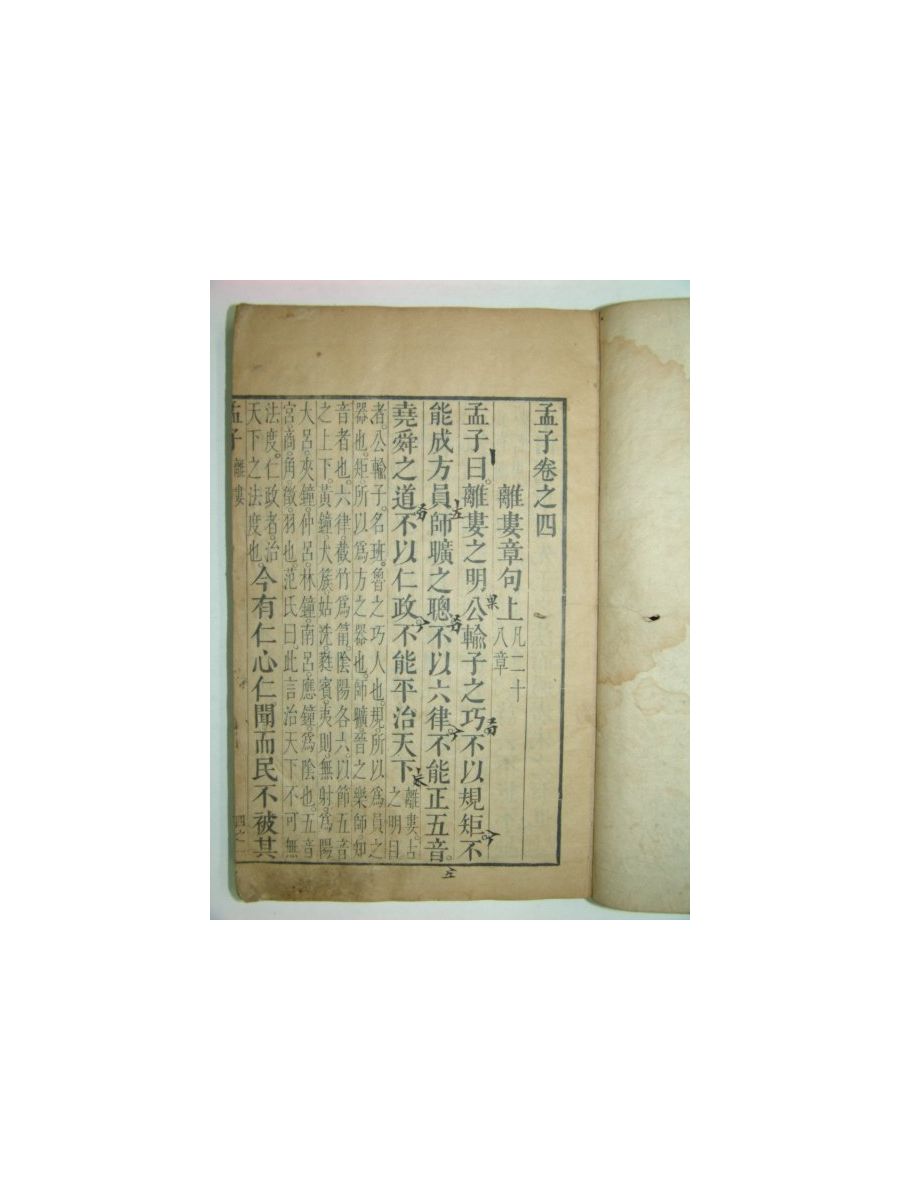 孟子卷之四
離婁章句上 凡二十八章
孟子曰。離婁之明公輸子之巧不以規矩。不
能成方員師曠之聰不以六律。不能正五音。
堯舜之道不以仁政。不能平治天下 離婁。古之明目
者。公輸子。名班。魯之巧人也。規。所以爲員之
器也。矩。所以爲方之器也。師曠。晉之樂師。知
音者也。六律。截竹爲筩。陰陽各六。以節五音
之上下。黃鐘。大簇。姑洗。蕤賓。夷則。無射。爲陽
大呂。夾鐘。仲呂。林鐘。南呂。應鐘。爲陰也。五音
宮。商。角。徵。羽也。范氏曰。此言治天下不可無
法度。仁政者。治
天下之法度也。今有仁心仁聞而民不被其
孟子 離婁 四之一